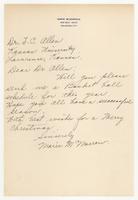 Dr. F. C. Allen
Kansas University
Lawrence, Kansas
Dear Dr. Allen
Will you please
send me a Basket Ball
schedule for this year
Hope you all have a successful
season.
With best wishes for a Merry
Christmas
Sincerely
Marie M